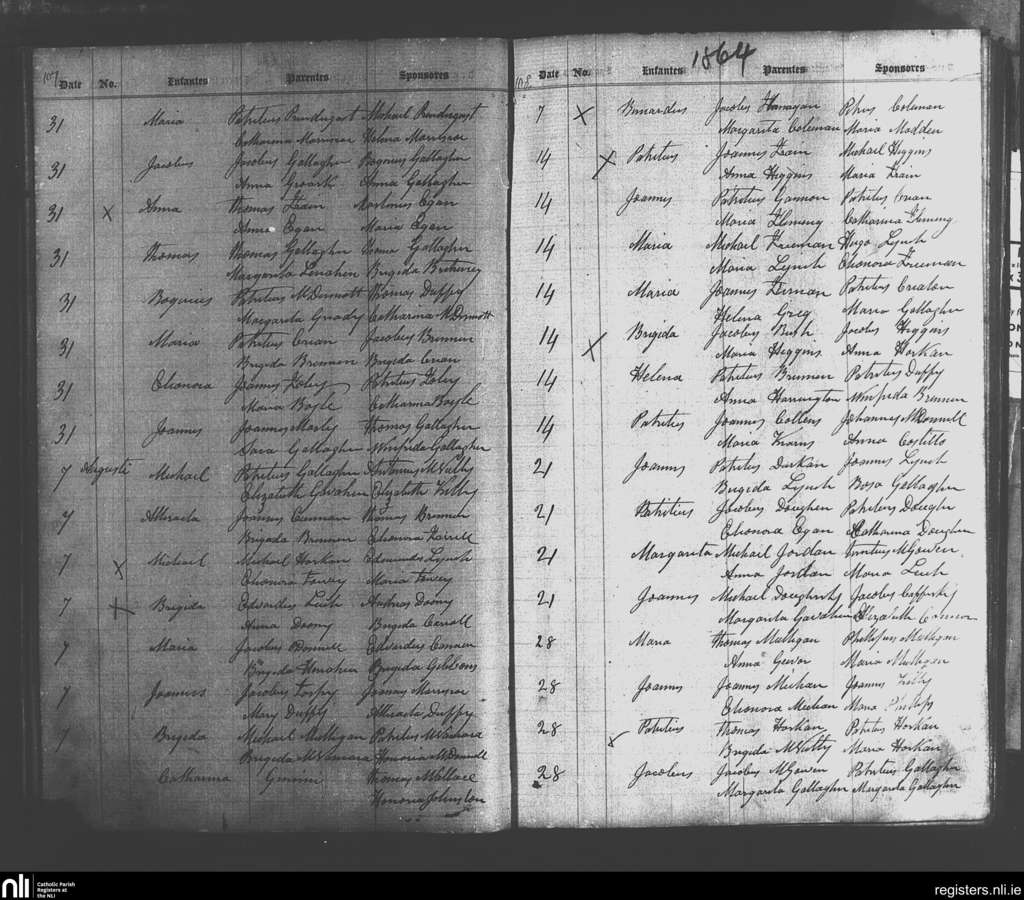 107 Date No. Infantes Parentes Sponsores
31 Maria Patritius Prendergast Michael Prendergast
Catharina Morrisroe Helena Morrisroe
31 Jacobus Jacobus Gallagher Gallagher
Anna Groark Anna Gallagher
31 x Anna Thomas Egan
Anna Egan Maria Egan
31 Thomas Thomas Gallagher Gallagher
Margarita Lenahen Brigida
31 Patritius McDermott Thomas Duffy
Margarita Grady Catharina McDermott
31 Maria Patritius Jacobus Brennen
Brigida Brennan Brigida
31 Elionora Joannes Foley Patritius Foley
Maria Boyle Catharina Boyle
31 Joannes Joannes Thomas Gallagher
Sara Gallagher Winifrida Gallagher
7 Augusti Michael Patritius Gallagher Antonius McNulty
Elizabeth Gavahen Elizabeth Kelly
7 Attracta Joannes Thomas Brennen
Brigida Brennen Elionora Farrell
7 x Michael Michael Horkan Edmundus Lynch
Elionora Towey Maria Towey
7 x Brigida Edvardus Leech Andreas
Anna Brigida Carroll
7 Maria Jacobus Edvardus
Brigida Brigida Gibbons
7 Joannes Jacobus Torpy Thomas Morrisroe
Mary Duffy Attracta Duffy
7 Brigida Michael Mulligan Patritius McNamara
Brigida McNamara Honoria McDonnell
Catharina Gemini Thomas
Honoria Johnston
1864
108 Date No. Infantes Parentes Sponsores
7 x Barnardus Jacobus Flanagan Petrus Coleman
Margarita Coleman Maria Madden
14 x Patritius Joannes Michael Higgins
Anna Higgins Maria
14 Joannes Patritius Gannon Patritius
Maria Fleming Catharina Fleming
14 Maria Michael Freeman Hugo Lynch
Maria Lynch Elionora Freeman
14 Maria Joannes Patritius Creaton
Helena Greg Maria Gallagher
14 x Brigida Jacobus Rush Jacobus Higgins
Maria Higgins Anna Horkan
14 Helena Patritius Brennen Patritius Duffy
Anna Harrington Winifrida Brennen
14 Patritius Joannes Collens Johannes McDonnell
Maria Anna Costello
21 Joannes Patritius Durkan Joannes Lynch
Brigida Lynch Rosa Gallagher
21 Patritius Jacobus Dougher Patritius Dougher
Elionora Egan Catharina Dougher
21 Margarita Michael Jordan McGowen
Anna Jordan Maria Leech
21 Joannes Michael Dougherty Jacobus Cafferty
Margarita Gavahen Elizabeth
28 Maria Thomas Mulligan Phillipus Mulligan
Anna Maria Mulligan
28 Joannes Joannes Meehan Joannes Kelly
Elionora Meehan Maria Phillips
28 x Patritius Thomas Horkan Patritius Horkan
Brigida McNulty Maria Horkan
28 Jacobus Jacobus McGowen Patritius Gallagher
Margarita Gallagher Margarita Gallagher
nli Catholic Parish
Registers at
the NLI
registers.nli.ie